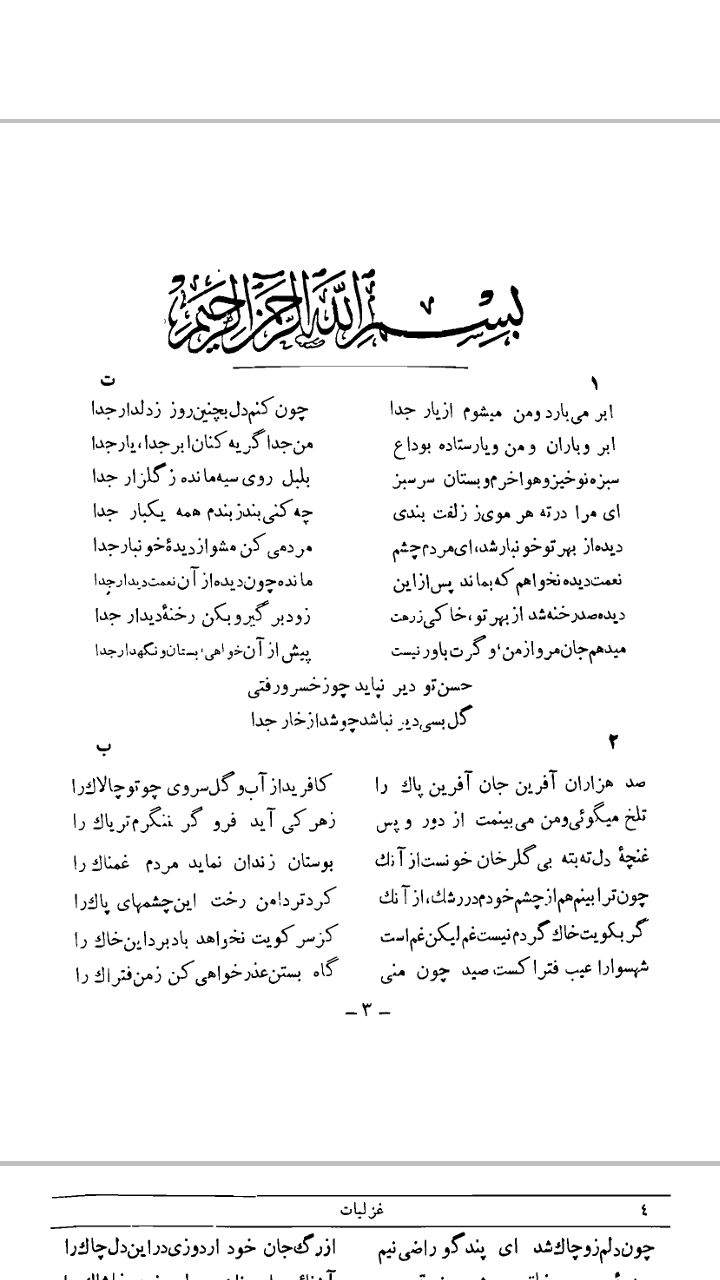 بسم الله الرحمن الرحیم
۱ ت
ابر می‌بارد و من میشوم از یار جدا چون کنم دل بچنین روز ز دلدار جدا
ابر و باران و من و یار ستاده بوداع من جدا گریه کنان ابر جدا، یار جدا
سبزه نوخیز و هوا خرم و بستان سرسبز بلبل روی سیه مانده ز گلزار جدا
ای مرا در ته هر موی ز زلفت بندی چه کنی بند ز بندم همه یکبار جدا
دیده از بهر تو خونبار شد، ای مردم چشم مردمی کن مشو از دیدهٔ خونبار جدا
نعمت دیده نخواهم که بماند پس از این مانده چون دیده از آن نعمت دیدار جدا
دیده صد رخنه شد از بهر تو، خاکی ز رهت زود برگیر و بکن رخنهٔ دیدار جدا
میدهم جان مرو از من، و گرت باور نیست پیش از آن خواهی، بستان و نگهدار جدا
حسن تو دیر نپاید چو ز خسرو رفتی
گل بسی دیر نباشد چو شد از خار جدا
۲ ب
صد هزاران آفرین جان آفرین پاك را کافرید از آب و گل سروی چو تو چالاك را
تلخ میگوئی و من می‌بینمت از دور و پس زهر کی آید فرو گر ننگرم تریاك را
غنچهٔ دل ته بته بی گلرخان خونست از آنك بوستان زندان نماید مردم غمناك را
چون ترا بینم هم از چشم خودم در رشك، از آنك کرد تر دامن رخت این چشمهای پاك را
گر بکویت خاك گردم نیست غم لیکن غم است کز سر کویت نخواهد باد برد این خاك را
شهسوارا عیب فتراکست صید چون منی گاه بستن عذر خواهی کن ز من فتراك را
– ۳ –
٤ غزلیات
چون دلم زو چاك شد ای پند گو راضی نیم از رگ جان خود ار دوزی در این دل چاك را